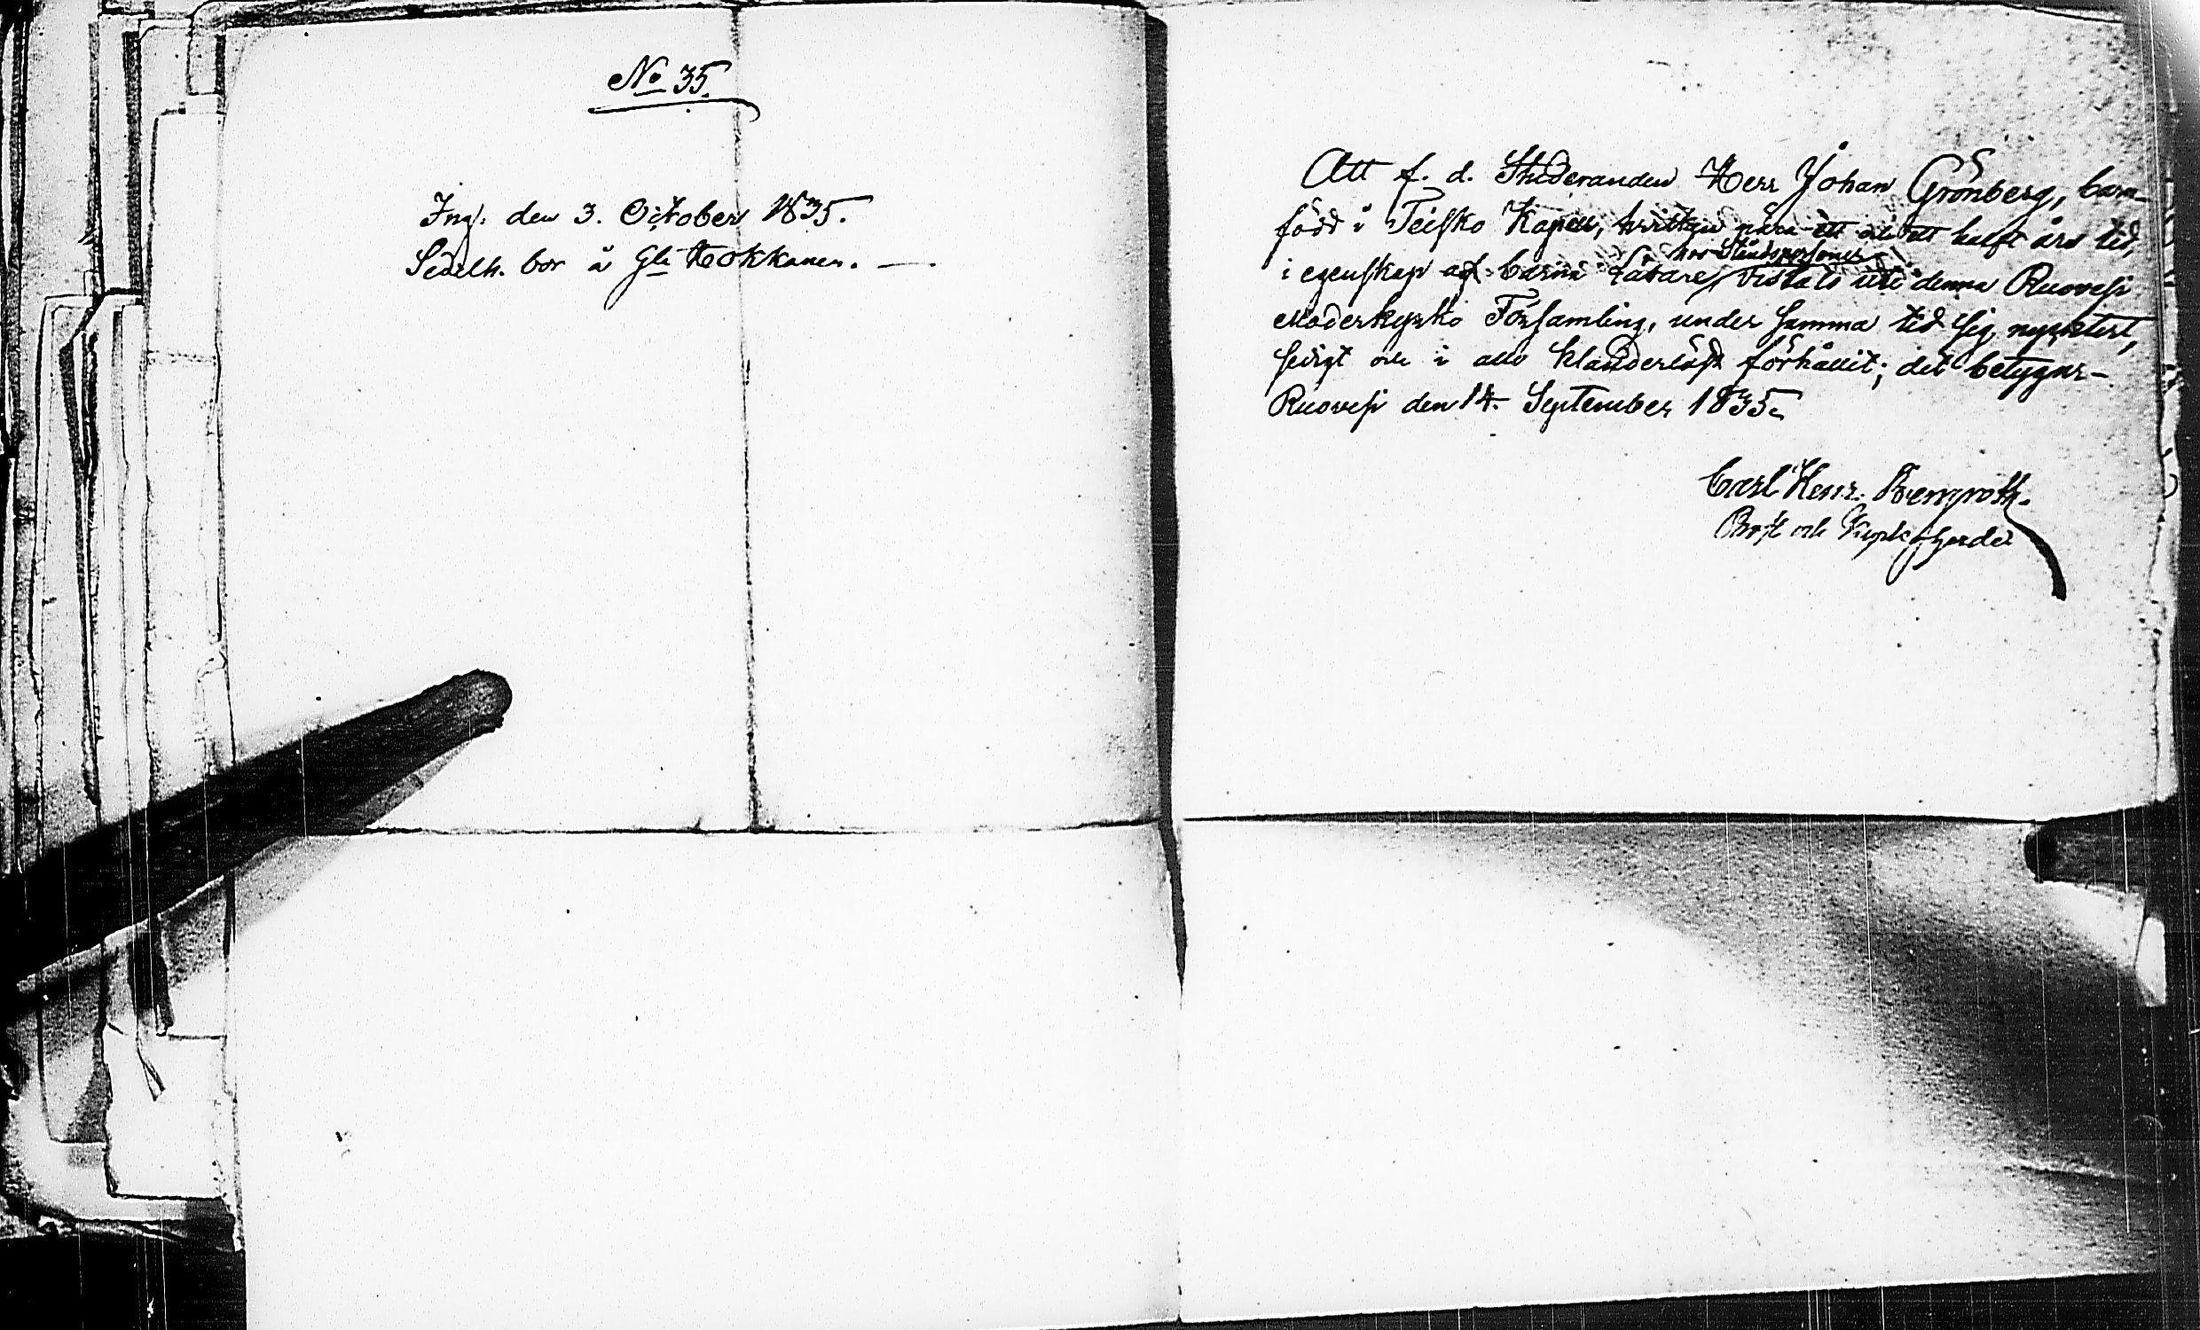 No 35.
Ing. den 3. October 1835.
Sedelh. bor å Gla Kokkanen. —
Att f. d. Studeranden Herr Johan Grönberg, barn-
född i Teisko Kapell, hvilken nära ett och ett halft års tid,
hos Ståndspersoner
i egenskap af barna Lärare, vistats uti denna Ruovesi
Moderkyrko Församling, under samma tid sig nycktert,
sedigt och i allo klanderlöst förhållit; det betygar –
Ruovesi den 14. September 1835.
Carl Henr. Bergroth.
Prost och Kyrkoherde